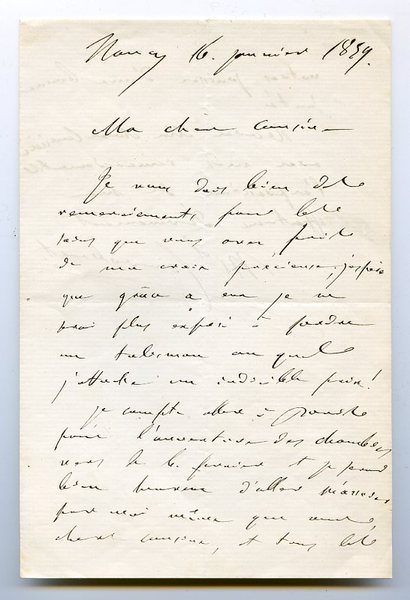 Nancy 16 janvier 1859.
Ma chère cousine
Je vous dois bien des
remerciements pour les
soins que vous avez pris
de ma croix précieuse, j'espère
que grâce à eux je ne
serai plus exposé à perdre
un talisman auquel
j'attache un indicible prix!
je compte aller à
pour l'ouverture des chambres
vers le 6 février et je serai
bien heureux d'aller
moi même que vous,
chère cousine, et tous les